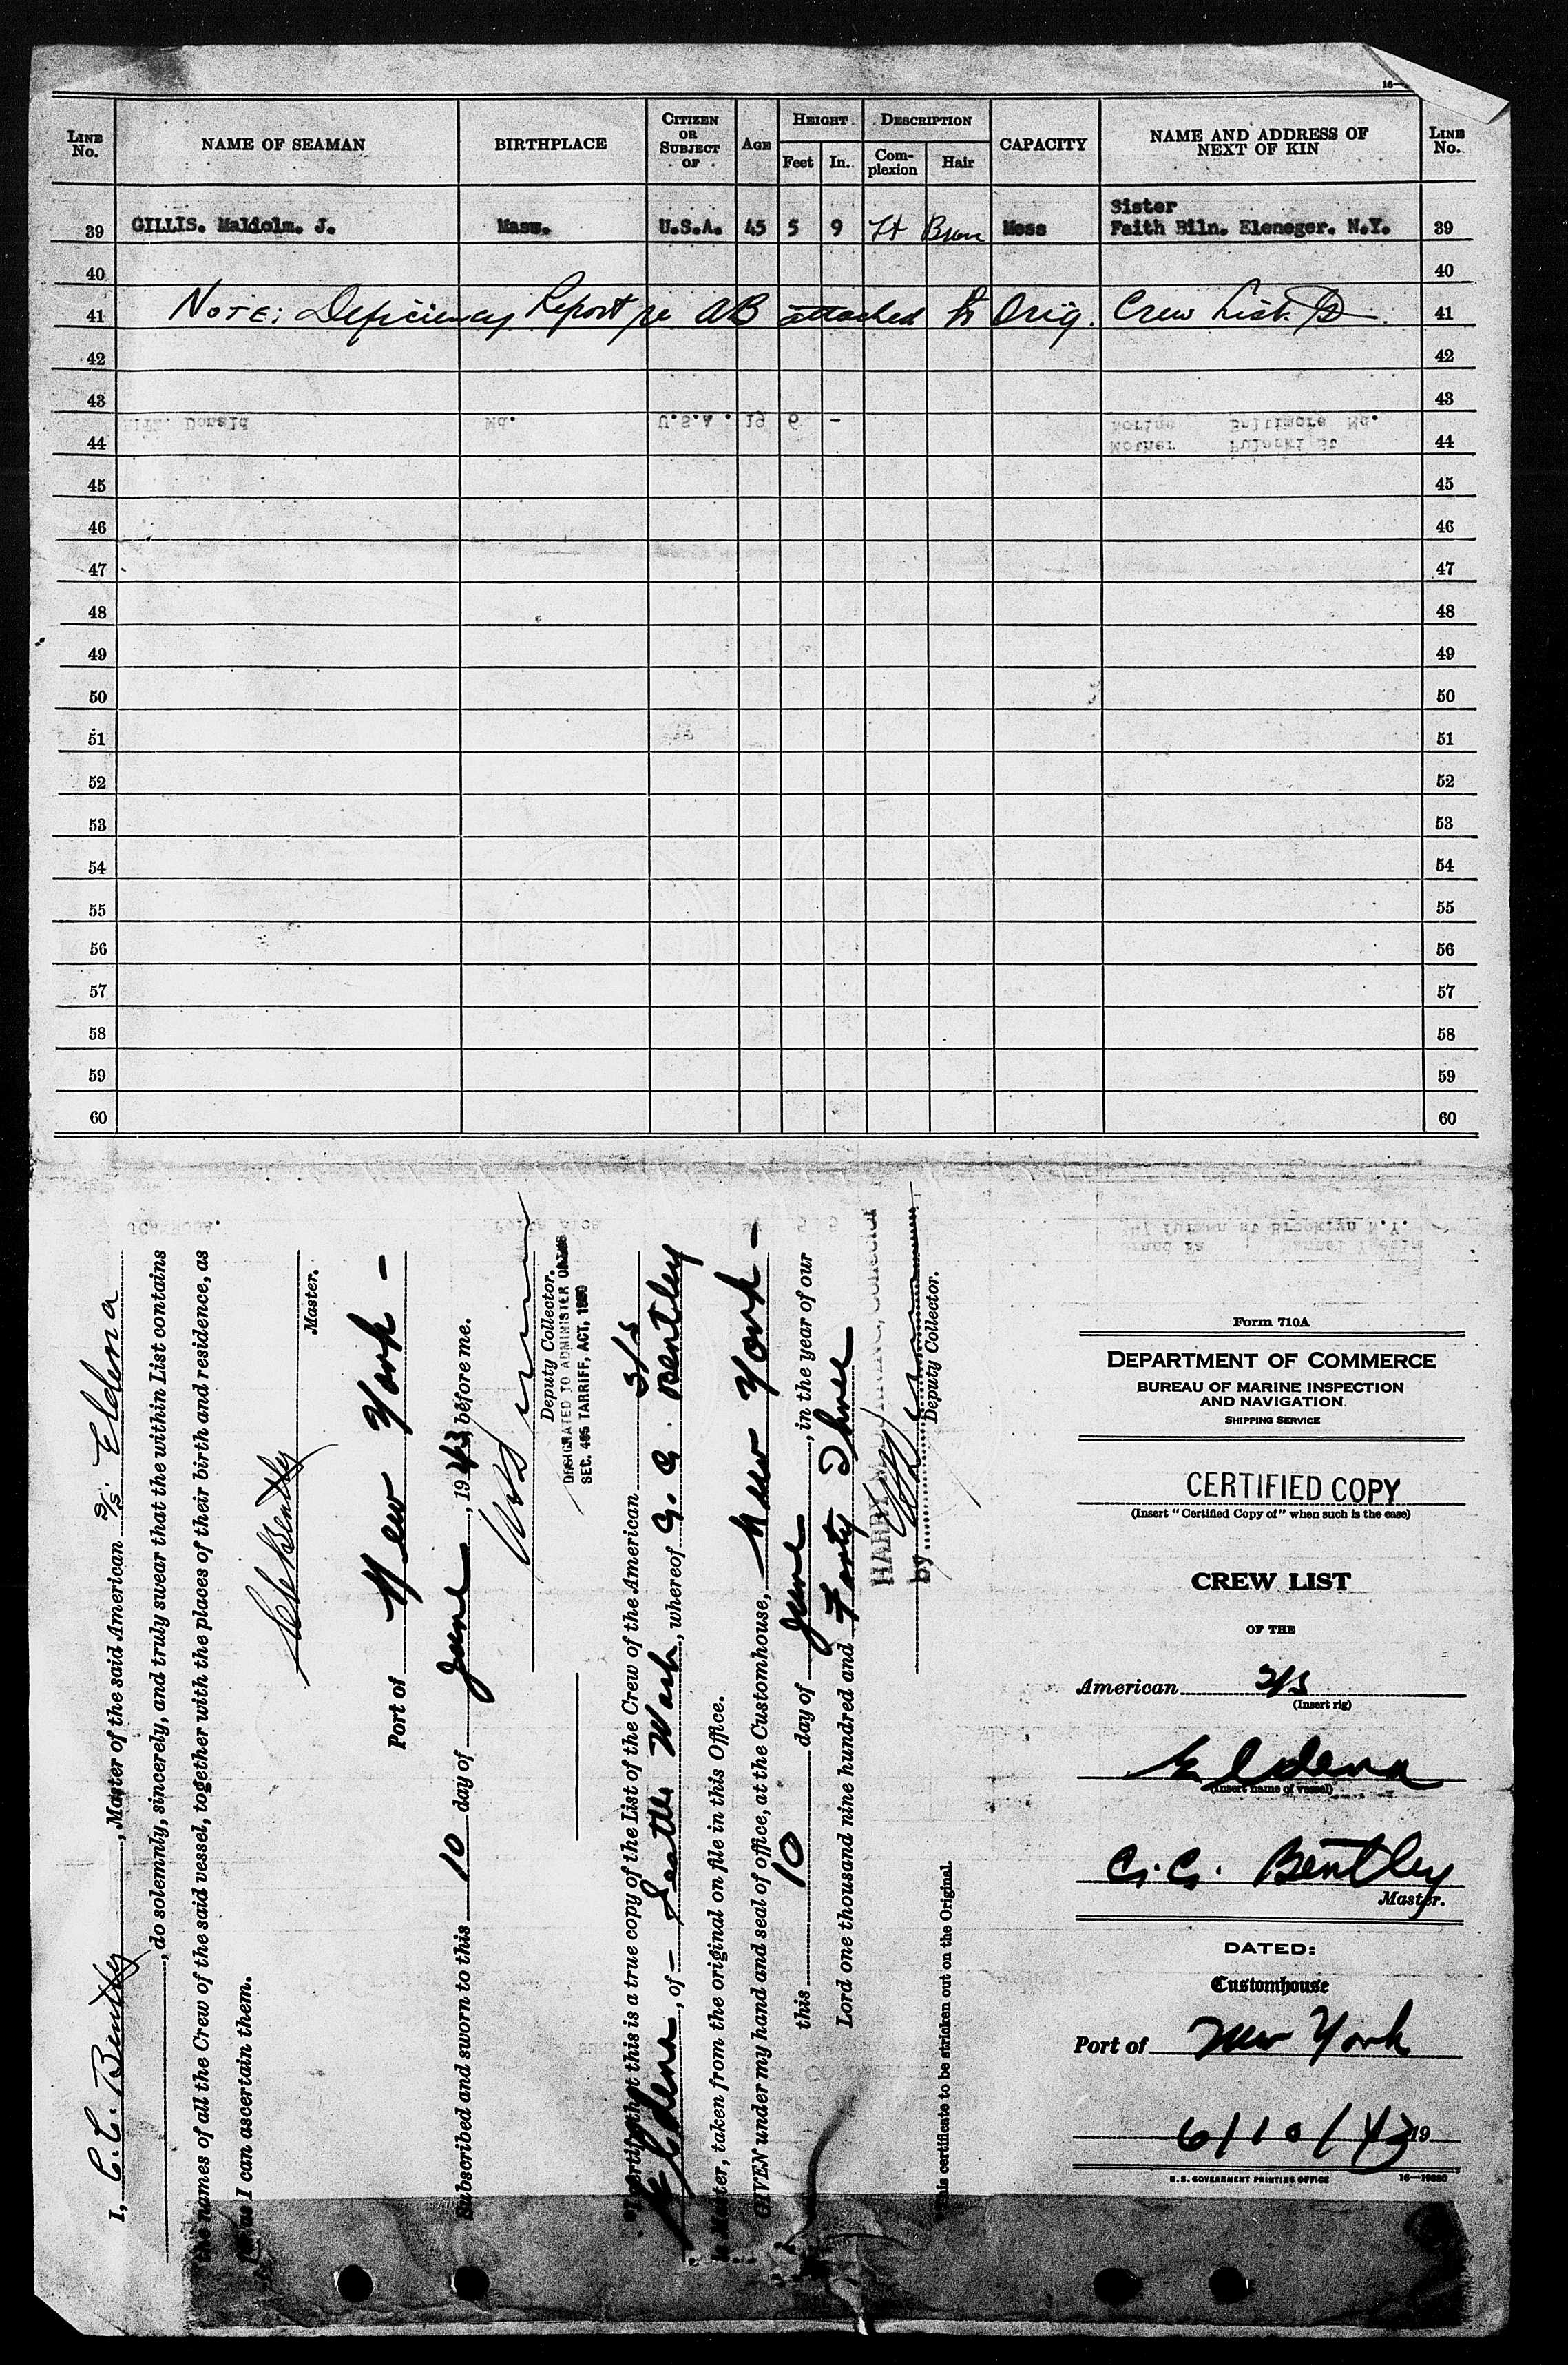 16—
LINE No. NAME OF SEAMAN BIRTHPLACE CITIZEN OR SUBJECT OF AGE HEIGHT DESCRIPTION CAPACITY NAME AND ADDRESS OF NEXT OF KIN LINE No.
Feet In. Complexion Hair
Sister
39 GILLIS. Malcolm. J. Mass. U.S.A. 45 5 9 Lt Brown Mess Faith Biln. Eleneger. N.Y. 39
40 40
41 NOTE: Deficiency Report re AB attached to Orig. Crew List 41
42 42
43 43
Donald Md. U.S.A. 19 6 - Baltimore Md.
44 Mother Pulaski St 44
45 45
46 46
47 47
48 48
49 49
50 50
51 51
52 52
53 53
54 54
55 55
56 56
57 57
58 58
59 59
60 60
I, C. C. Bentley, Master of the said American S/S Eldena
, do solemnly, sincerely, and truly swear that the within List contains
the names of all the Crew of the said vessel, together with the places of their birth and residence, as
as I can ascertain them.
C C Bentley
Master.
Port of New York -
Subscribed and sworn to this 10 day of June, 1943, before me.
Deputy Collector.
DESIGNATED TO ADMINISTER OATHS
SEC. 485 TARRIFF, ACT, 1930
that this is a true copy of the List of the Crew of the American S/S
Eldena, of - Seattle Wash, whereof C. C. Bentley
is Master, taken from the original on file in this Office.
GIVEN under my hand and seal of office, at the Customhouse, New York -
this 10 day of June, in the year of our
Lord one thousand nine hundred and Forty Three
HARRY M. Collector
by
Deputy Collector.
This certificate to be stricken out on the Original.
Form 710A
DEPARTMENT OF COMMERCE
BUREAU OF MARINE INSPECTION
AND NAVIGATION
SHIPPING SERVICE
CERTIFIED COPY
(Insert "Certified Copy of" when such is the case)
CREW LIST
OF THE
American S/S
(Insert rig)
Eldena
(Insert name of vessel)
C. C. Bentley
Master.
DATED:
Customhouse
Port of New York
6/10/43 19
U.S. GOVERNMENT PRINTING OFFICE 16—19380